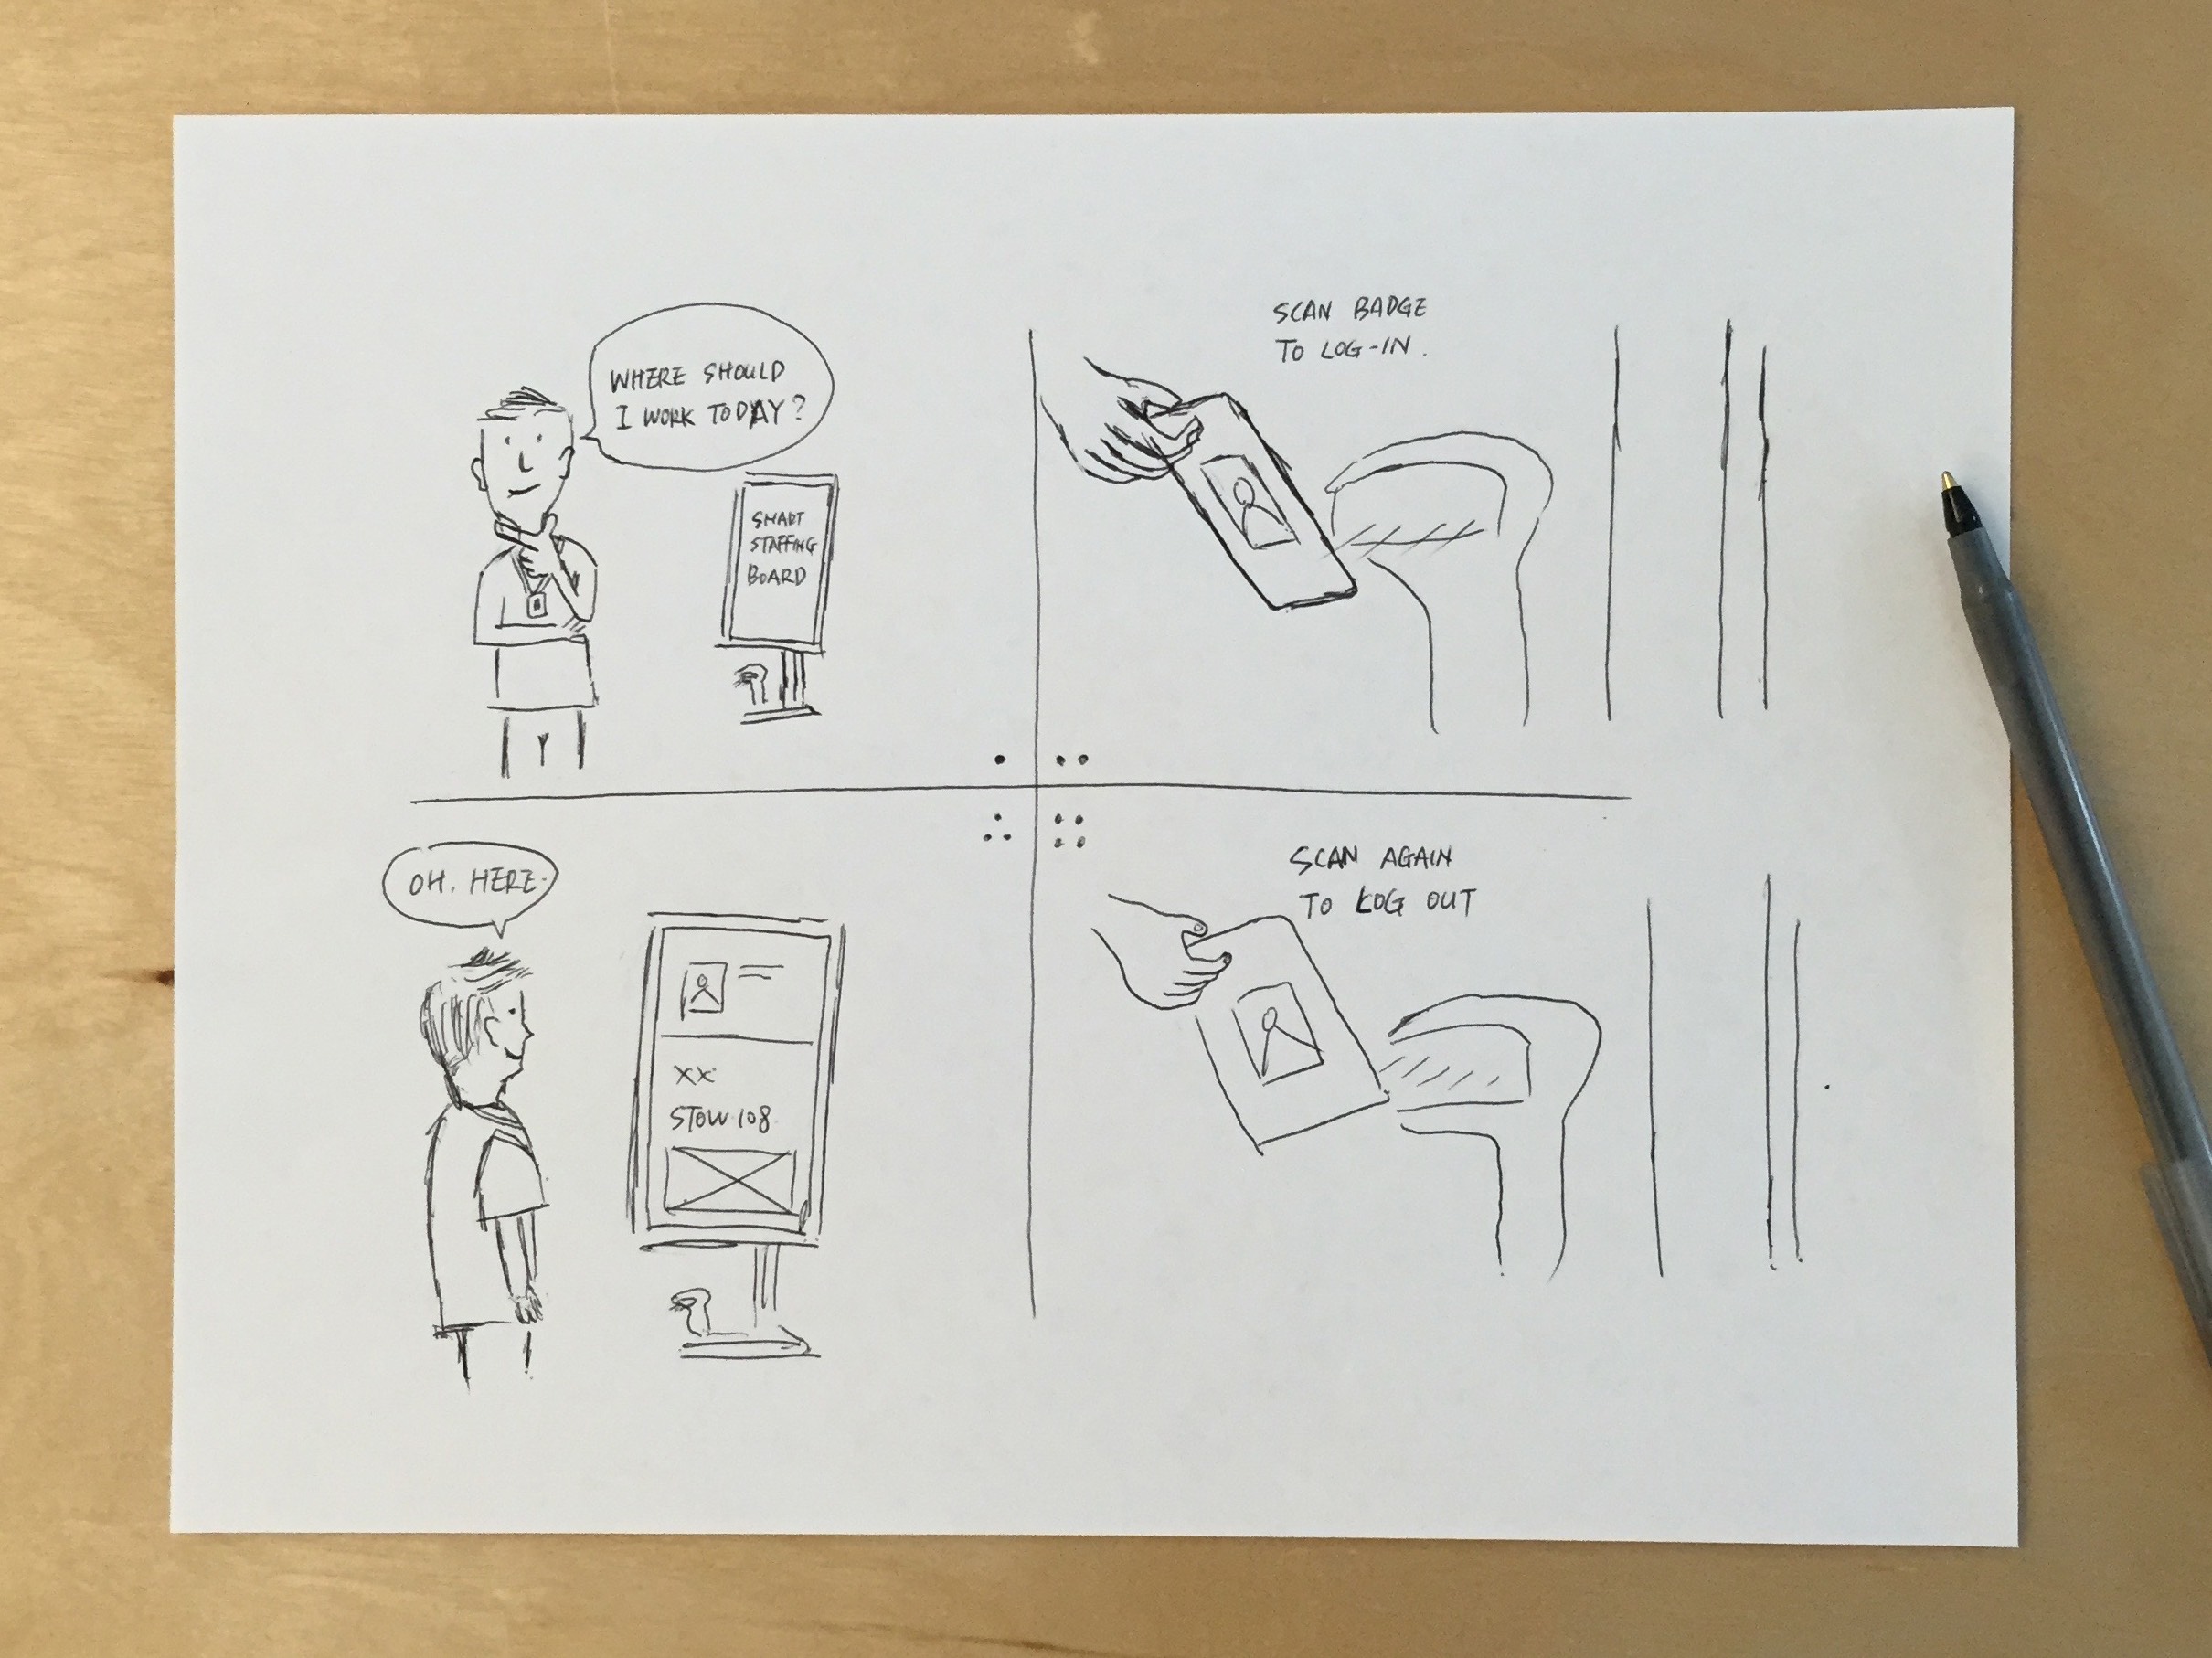 WHERE SHOULD
I WORK TODAY?
SMART
STAFFING
BOARD
SCAN BADGE
TO LOG-IN.
OH. HERE.
XX
STOW 108
SCAN AGAIN
TO LOG OUT